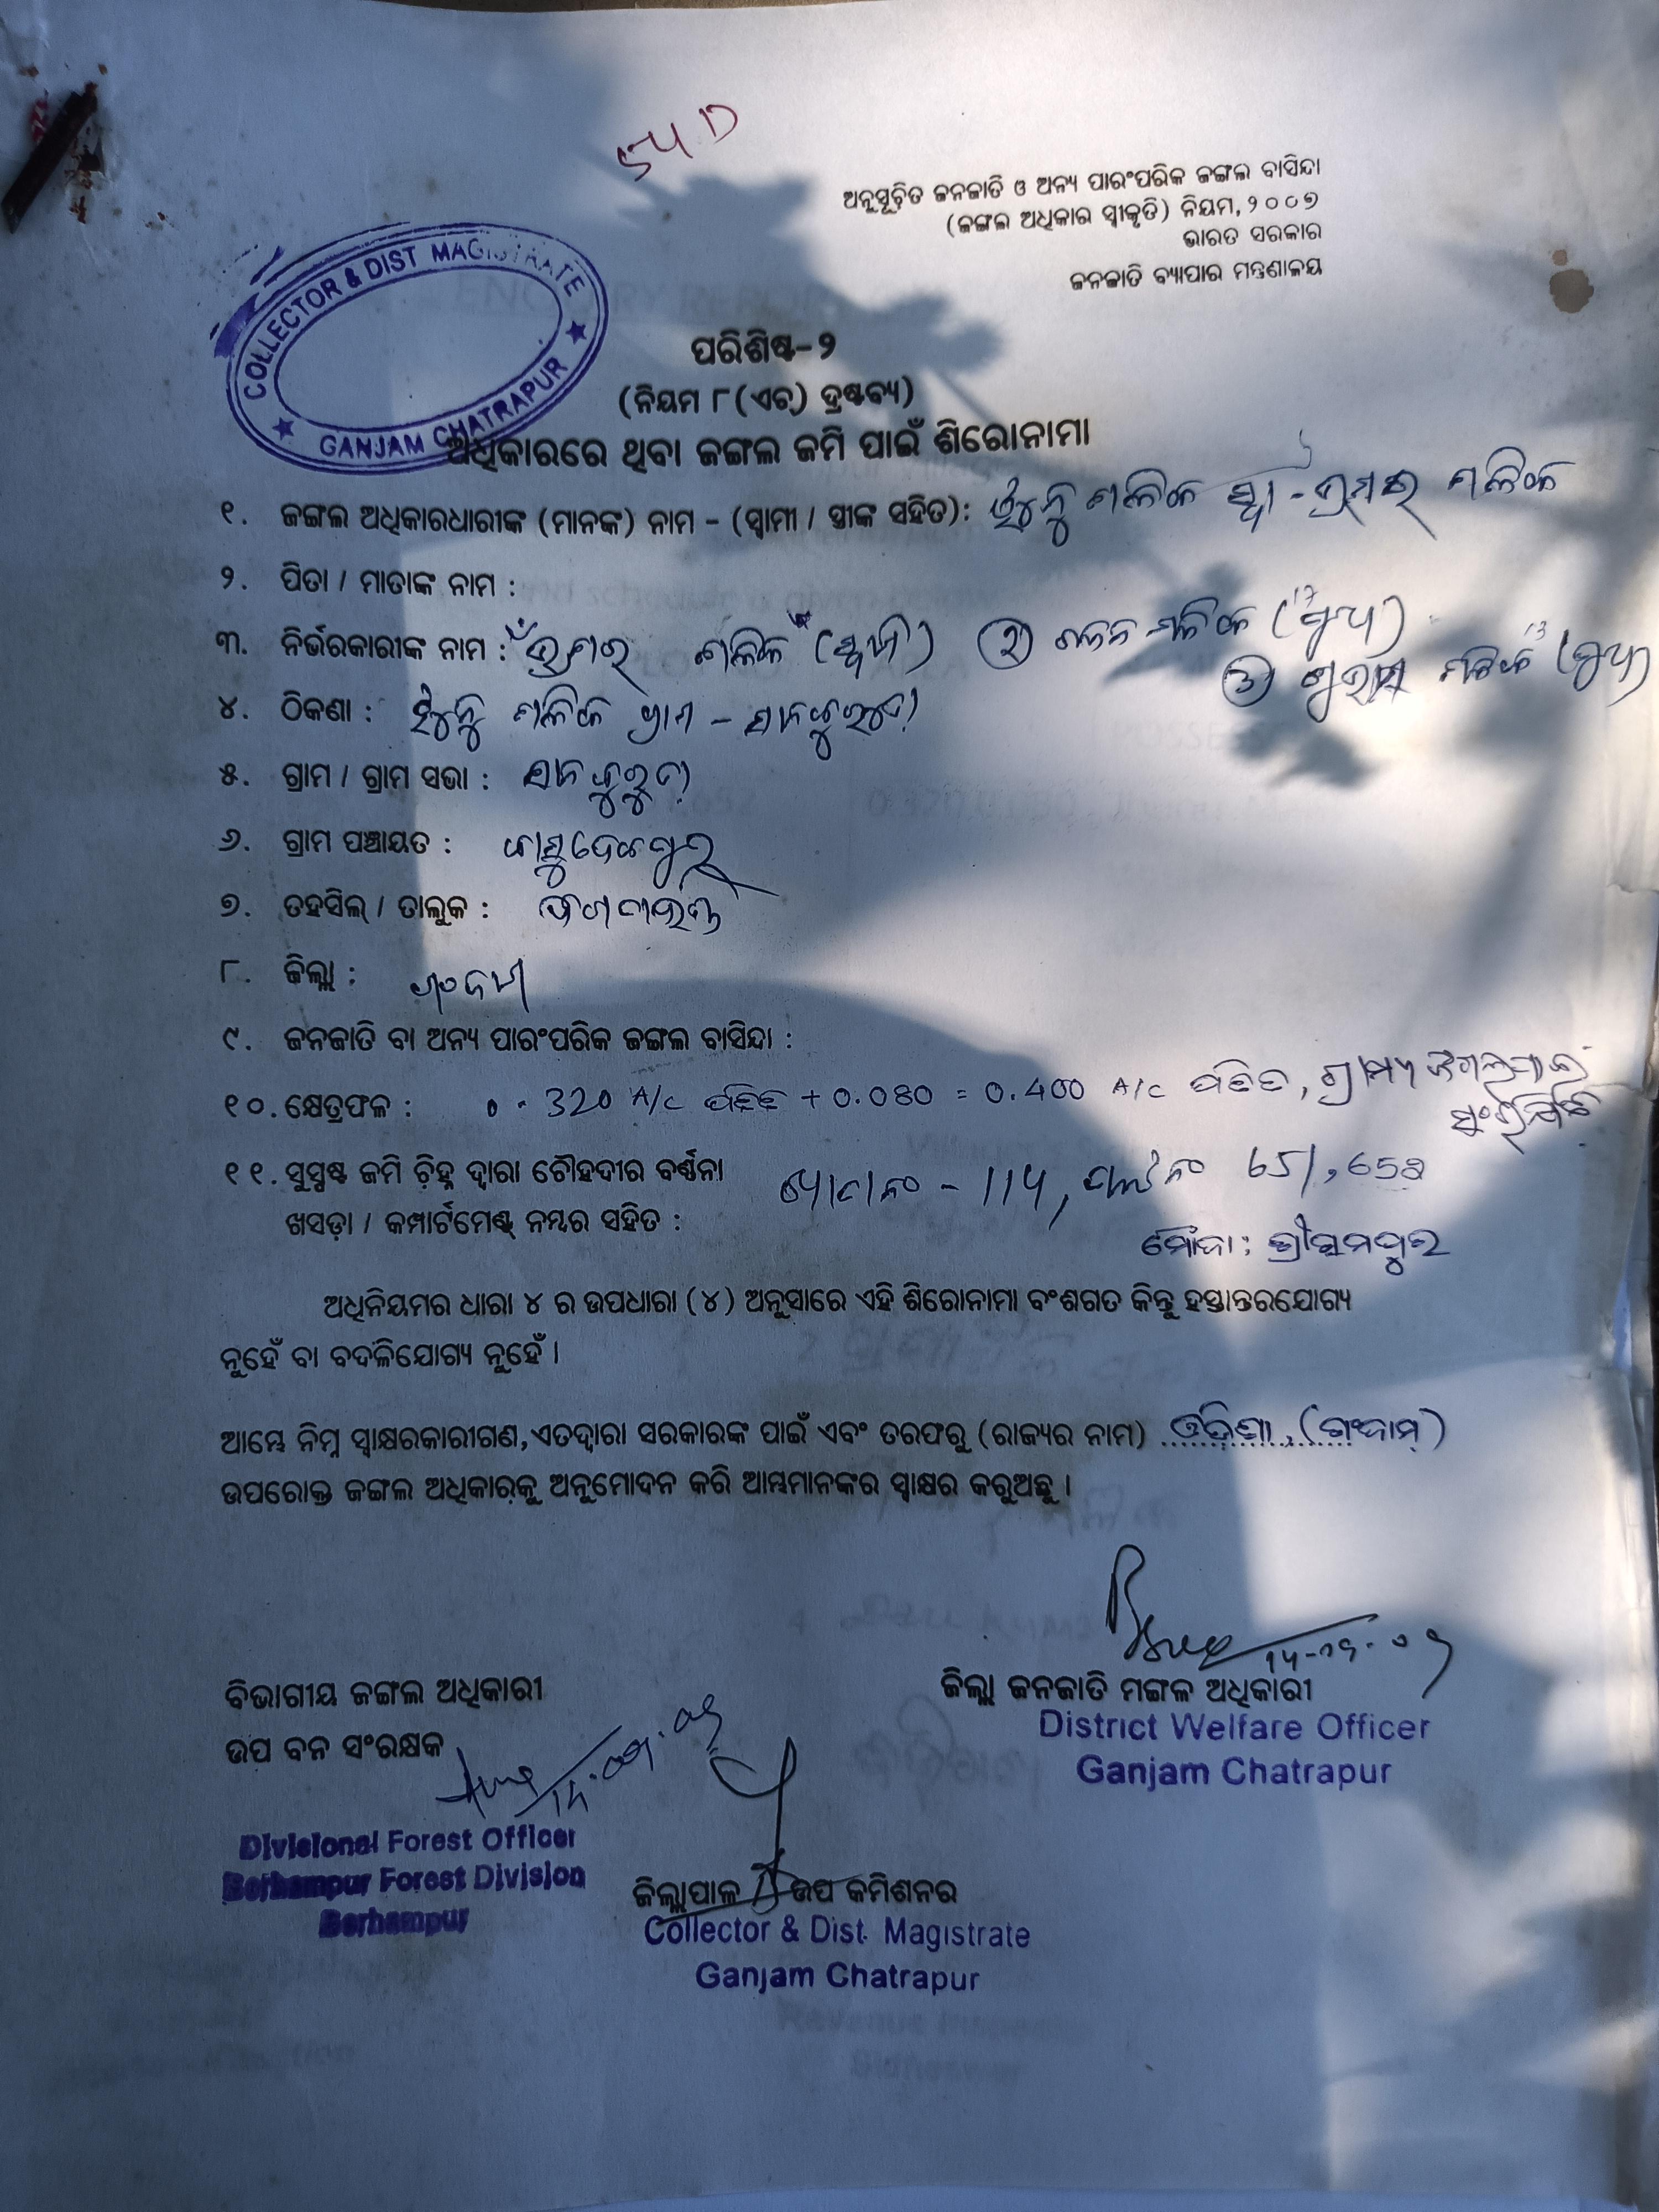 ଅନୁସୂଚିତ ଜନଜାତି ଓ ଅନ୍ୟ ପାରଂପରିକ ଜଙ୍ଗଲ ବାସିନ୍ଦା
(ଜଙ୍ଗଲ ଅଧିକାର ସ୍ୱୀକୃତି) ନିୟମ, ୨୦୦୭
ଭାରତ ସରକାର
ଜନଜାତି ବ୍ୟାପାର ମନ୍ତ୍ରଣାଳୟ
COLLECTOR & DIST MAGISTRATE
GANJAM CHATRAPUR
ପରିଶିଷ୍ଟ-୨
(ନିୟମ ୮(ଏଚ୍) ଦ୍ରଷ୍ଟବ୍ୟ)
ଅଧିକାରରେ ଥିବା ଜଙ୍ଗଲ ଜମି ପାଇଁ ଶିରୋନାମା
୧. ଜଙ୍ଗଲ ଅଧିକାରଧାରୀଙ୍କ (ମାନଙ୍କ) ନାମ - (ସ୍ୱାମୀ / ସ୍ତ୍ରୀଙ୍କ ସହିତ): ମଲିକ ସ୍ୱା - ମଲିକ
୨. ପିତା / ମାତାଙ୍କ ନାମ :
୩. ନିର୍ଭରକାରୀଙ୍କ ନାମ : ମଲିକ (ସ୍ୱାମୀ) ୨) ମଲିକ (ପୁଅ)
୩) ମଲିକ (ପୁଅ)
୪. ଠିକଣା : ମଲିକ ଗ୍ରାମ -
୫. ଗ୍ରାମ / ଗ୍ରାମ ସଭା :
୬. ଗ୍ରାମ ପଞ୍ଚାୟତ : ବାସୁଦେବପୁର
୭. ତହସିଲ୍ / ତାଲୁକ :
୮. ଜିଲ୍ଲା : ଗଂଜାମ
୯. ଜନଜାତି ବା ଅନ୍ୟ ପାରଂପରିକ ଜଙ୍ଗଲ ବାସିନ୍ଦା :
୧୦. କ୍ଷେତ୍ରଫଳ : 0.320 A/c ପତିତ + 0.080 = 0.400 A/c ପତିତ, ଗ୍ରାମ୍ୟ ଜଂଗଲ
୧୧. ସୁସ୍ପଷ୍ଟ ଜମି ଚିହ୍ନ ଦ୍ୱାରା ଚୌହଦୀର ବର୍ଣ୍ଣନା ଖାତା ନଂ - 114, ପ୍ଲଟ ନଂ 651, 652
ଖସଡ଼ା / କମ୍ପାର୍ଟମେଣ୍ଟ୍ ନମ୍ବର ସହିତ : ମୌଜା :
ଅଧିନିୟମର ଧାରା ୪ ର ଉପଧାରା (୪) ଅନୁସାରେ ଏହି ଶିରୋନାମା ବଂଶଗତ କିନ୍ତୁ ହସ୍ତାନ୍ତରଯୋଗ୍ୟ
ନୁହେଁ ବା ବଦଳିଯୋଗ୍ୟ ନୁହେଁ ।
ଆମ୍ଭେ ନିମ୍ନ ସ୍ୱାକ୍ଷରକାରୀଗଣ, ଏତଦ୍ୱାରା ସରକାରଙ୍କ ପାଇଁ ଏବଂ ତରଫରୁ (ରାଜ୍ୟର ନାମ) ଓଡ଼ିଶା, (ଗଂଜାମ୍)
ଉପରୋକ୍ତ ଜଙ୍ଗଲ ଅଧିକାରକୁ ଅନୁମୋଦନ କରି ଆମ୍ଭମାନଙ୍କର ସ୍ୱାକ୍ଷର କରୁଅଛୁ ।
ଜିଲ୍ଲା ଜନଜାତି ମଙ୍ଗଳ ଅଧିକାରୀ
District Welfare Officer
Ganjam Chatrapur
ବିଭାଗୀୟ ଜଙ୍ଗଲ ଅଧିକାରୀ
ଉପ ବନ ସଂରକ୍ଷକ
14.09.09
Divisional Forest Officer
Berhampur Forest Division
Berhampur
ଜିଲ୍ଲାପାଳ ଉପ କମିଶନର
Collector & Dist. Magistrate
Ganjam Chatrapur